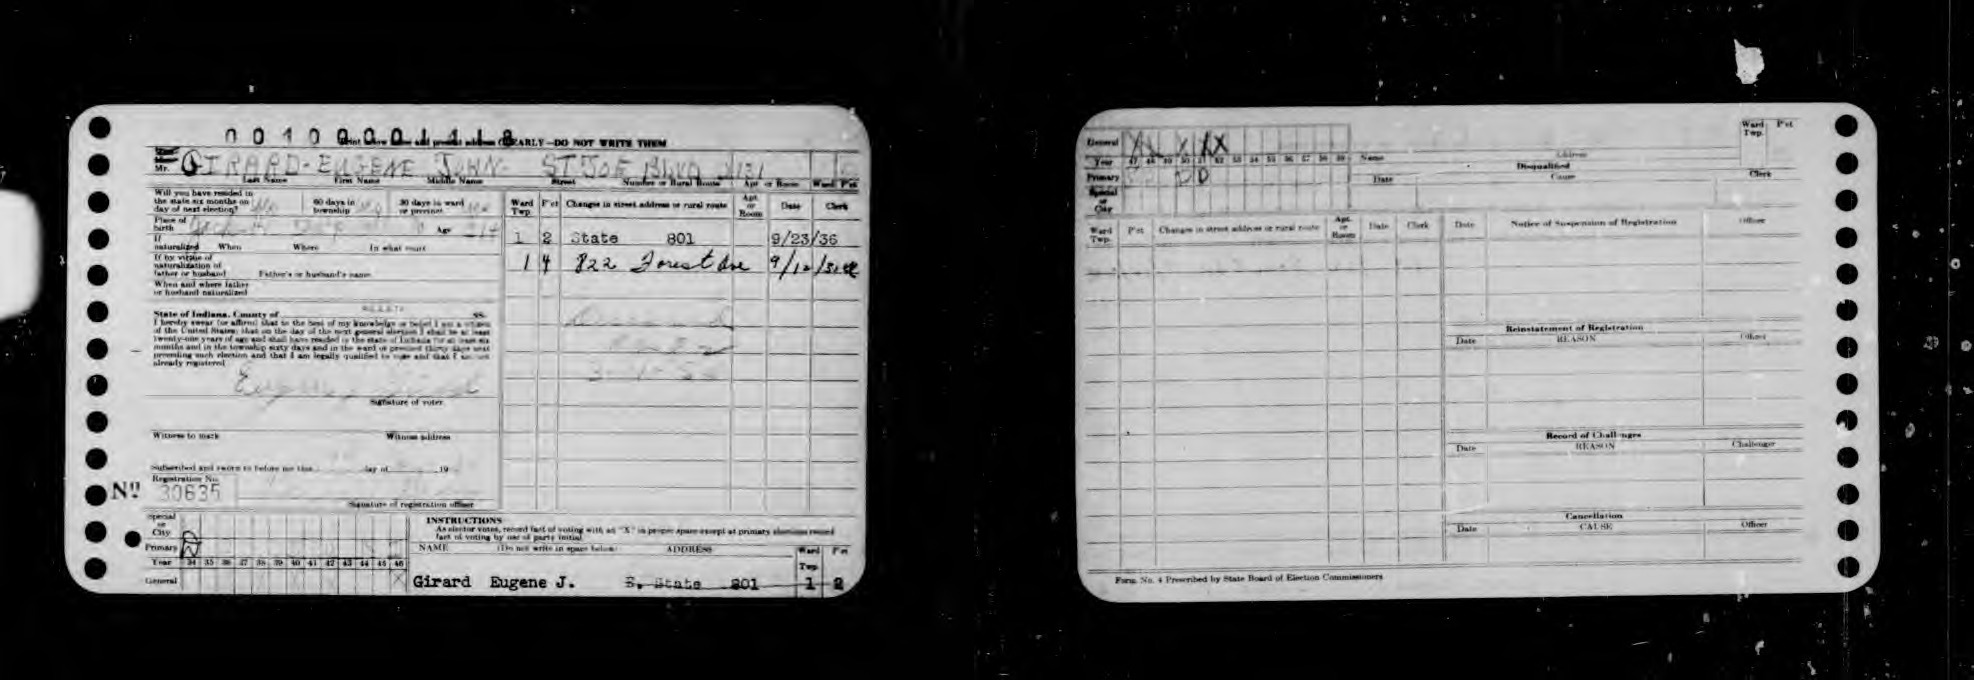 00100001418
Print Know and add present address CLEARLY—DO NOT WRITE THEM
Mr. GIRARD - EUGENE JOHN - ST JOE BLVD 1131
Last Name First Name Middle Name Street Number or Rural Route Apt. or Room Ward P'ct
Will you have resided in the state six months on day of next election? 60 days in township 30 days in ward or precinct
Place of birth Age
If naturalized When Where In what court
If by virtue of naturalization of father or husband Father's or husband's name
When and where father or husband naturalized
State of Indiana, County of SS.
I hereby swear (or affirm) that to the best of my knowledge or belief I am a citizen
of the United States; that on the day of the next general election I shall be at least
twenty-one years of age and shall have resided in the state of Indiana for at least six
months and in the township sixty days and in the ward or precinct thirty days next
preceding such election and that I am legally qualified to vote and that I am not
already registered
Signature of voter.
Witness to mark Witness address
Subscribed and sworn to before me this day of , 19
Registration No.
No 30635
Signature of registration officer
Ward Twp. P'ct Changes in street address or rural route Apt. or Room Date Clerk
1 2 State 801 9/23/36
1 4 822 Forest Ave
Special or City
Primary
Year 34 35 36 37 38 39 40 41 42 43 44 45 46
General
INSTRUCTIONS
As elector votes, record fact of voting with an "X" in proper space except at primary elections record
fact of voting by use of party initial.
NAME (Do not write in space below) ADDRESS Ward Twp. P'ct
Girard Eugene J. S. State 801 1 2
General X X X X X
Year 47 48 49 50 51 52 53 54 55 56 57 58 59
Primary D D
Special or City
Name Address Ward Twp. P'ct
Disqualified
Date Cause Clerk
Ward Twp. P'ct Changes in street address or rural route Apt. or Room Date Clerk
Date Notice of Suspension of Registration Officer
Reinstatement of Registration
Date REASON Officer
Record of Challenges
Date REASON Challenger
Cancellation
Date CAUSE Officer
Form No. 4 Prescribed by State Board of Election Commissioners